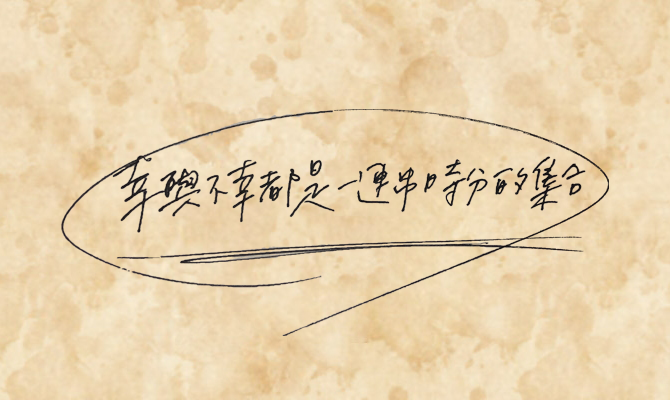 幸與不幸都是一連串時分的集合